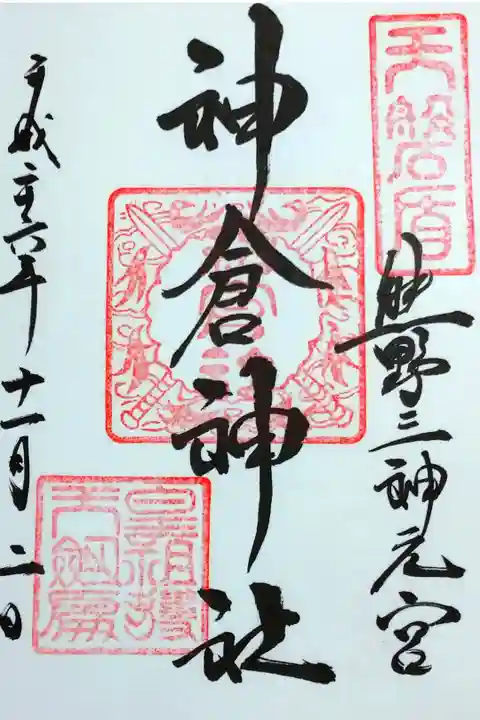 天磐盾
熊野三神元宮
神倉神社
平成二十六年十一月二日